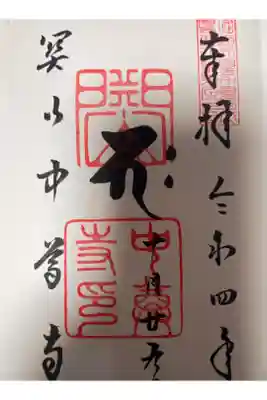 奉拝 令和四年
十月廿五日
関山中尊寺
中尊寺印